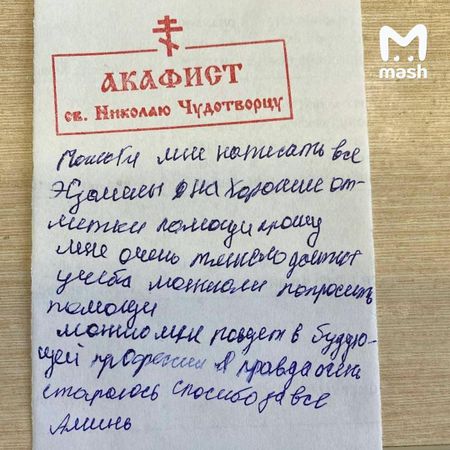 mash
АКАФИСТ
св. Николаю Чудотворцу
Помоги мне написать все
Экзамены на хорошие от-
метки помоги прошу
мне очень тяжело даётся
учеба можноли попросить
помощи
можно мне повезет в буддую-
щей профессии я правда очень
стараюсь спосибо за все
Аминь